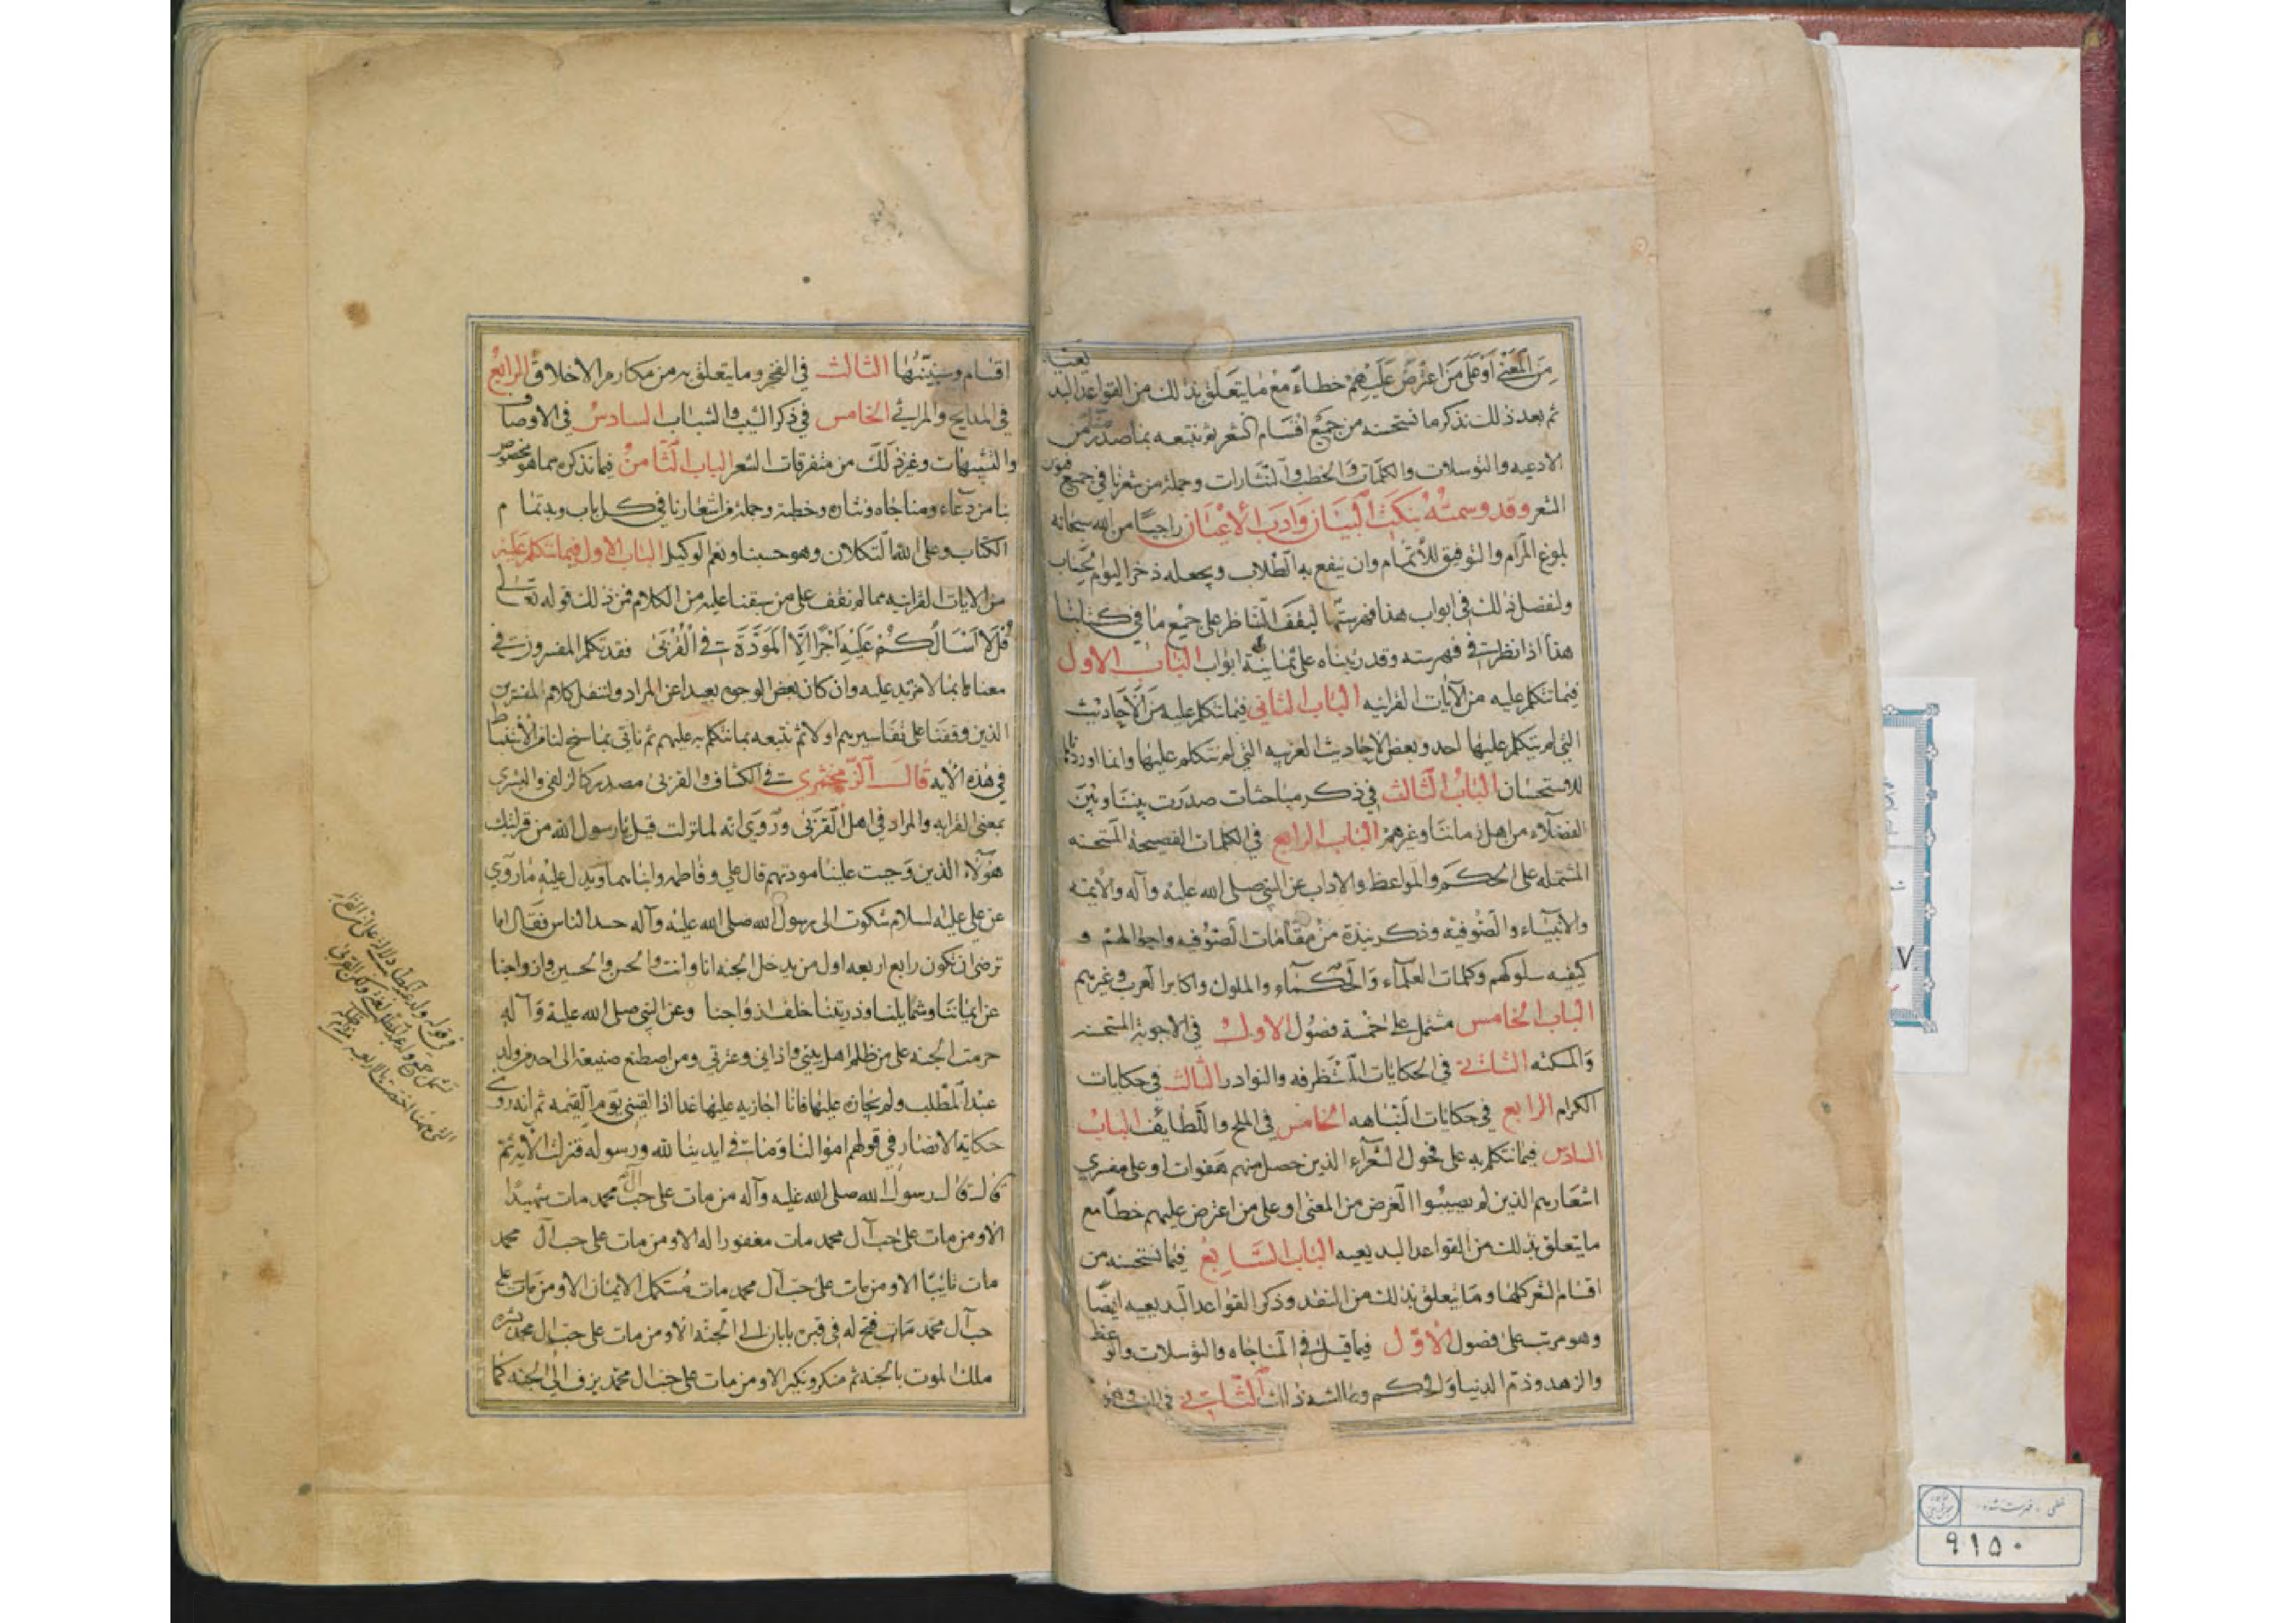 من المعنى أو على من اعترض عليهم خطاء مع ما يتعلق بذلك من القواعد البد
يعيه
ثم بعد ذلك نذكر ما نستحسنه من جميع اقسام الشعر ثم نتبعه بما صدر منا من
الادعيه والتوسلات والكلمات والخطب والنثارات وجملة من شعرنا في جميع فنون
الشعر وقد وسمته بنكت البيان وادب الاعيان راجيا من الله سبحانه
بلوغ المرام والتوفيق للاتمام وان ينفع به الطلاب ويجعله ذخرا ليوم الحساب
ولنفصل ذلك في ابواب هذا فهرستها ليقف الناظر على جميع ما في كتابنا
هذا اذا نظر في فهرسته وقد رتبناه على ثمانية ابواب الباب الاول
فيما نتكلم عليه من الآيات القرانيه الباب الثاني فيما نتكلم عليه من الأحاديث
التي لم يتكلم عليها احد وبعض الاحاديث الغريبه التي لم نتكلم عليها وانما اوردناها
للاستحسان الباب الثالث في ذكر مباحثات صدرت بيننا وبين
الفضلاء من اهل زماننا وغيرهم الباب الرابع في الكلمات الفصيحة المستحسنه
المشتمله على الحكم والمواعظ والاداب عن النبي صلى الله عليه وآله والائمه
والانبياء والصوفيه وذكر نبذة من مقامات الصوفيه واحوالهم و
كيفيه سلوكهم وكلمات العلماء والحكماء والملوك واكابر العرب وغيرهم
الباب الخامس مشتمل على خمسة فصول الاول في الاجوبة المستحسنه
والمسكته الثاني في الحكايات المستظرفه والنوادر الثالث في حكايات
الكرام الرابع في حكايات النباهه الخامس في الملح واللطايف الباب
السادس فيما نتكلم به على فحول الشعراء الذين حصل منهم هفوات او على مفسري
اشعارهم الذين لم يصيبوا الغرض من المعنى او على من اعترض عليهم خطأ مع
ما يتعلق بذلك من القواعد البديعيه الباب السابع فيما نستحسنه من
اقسام الشعر كلها وما يتعلق بذلك من النقد وذكر القواعد البديعيه ايضا
وهو مرتب على فصول الاول فيما قيل في المناجاه والتوسلات والوعظ
والزهد وذم الدنيا والحكم وما اشبه ذلك الثاني في
اقسام وسنبينها الثالث في الفخر وما يتعلق به من مكارم الاخلاق الرابع
في المدايح والمراثي الخامس في ذكر الشيب والشباب السادس في الاوصاف
والتشبيهات وغير ذلك من متفرقات الشعر الباب الثامن فيما نذكره مما هو مخصوص
بنا من دعاء ومناجاه ونثاره وخطبة وجملة من اشعارنا في كل باب وبه تمام
الكتاب وعلى الله التكلان وهو حسبنا ونعم الوكيل الباب الاول فيما نتكلم عليه
من الايات القرانيه مما لم نقف على من سبقنا عليه من الكلام فمن ذلك قوله تعالى
قل لا اسألكم عليه اجرا الا المودة في القربى فقد تكلم المفسرون في
معناها بما لا مزيد عليه وان كان بعض الوجوه بعيدا عن المراد ولننقل كلام المفسرين
الذين وقفنا على تفاسيرهم اولا ثم نتبعه بما نتكلم به عليهم ثم نأتي بما سنح لنا من الاستنباط
في هذه الآيه قال الزمخشري في الكشاف والقربى مصدر كالزلفى والبشرى
بمعنى القرابه والمراد في اهل القربى وروي انه لما نزلت قيل يا رسول الله من قرابتك
هؤلاء الذين وجبت علينا مودتهم قال علي وفاطمه وابناهما ويدل عليه ما روي
عن علي عليه السلام شكوت الى رسول الله صلى الله عليه وآله حسد الناس فقال اما
ترضى ان تكون رابع اربعه اول من يدخل الجنه انا وانت والحسن والحسين وازواجنا
عن ايماننا وشمايلنا وذريتنا خلف ازواجنا وعن النبي صلى الله عليه وآله
حرمت الجنه على من ظلم اهل بيتي واذاني في عترتي ومن اصطنع صنيعة الى احد من ولد
عبد المطلب ولم يجازه عليها فانا اجازيه عليها غدا اذا لقيني يوم القيمه ثم انه روى
حكاية الانصار في قولهم اموالنا وما في ايدينا لله ورسوله فنزلت الآية ثم
قال قال رسول الله صلى الله عليه وآله من مات على حب آل محمد مات شهيدا
الا ومن مات على حب آل محمد مات مغفورا له الا ومن مات على حب آل محمد
مات تائبا الا ومن مات على حب آل محمد مات مستكمل الايمان الا ومن مات على
حب آل محمد مات فتح له في قبره بابان الى الجنه الا ومن مات على حب آل محمد بشره
ملك الموت بالجنه ثم منكر ونكير الا ومن مات على حب ال محمد يزف الى الجنه كما
٩١٥٠